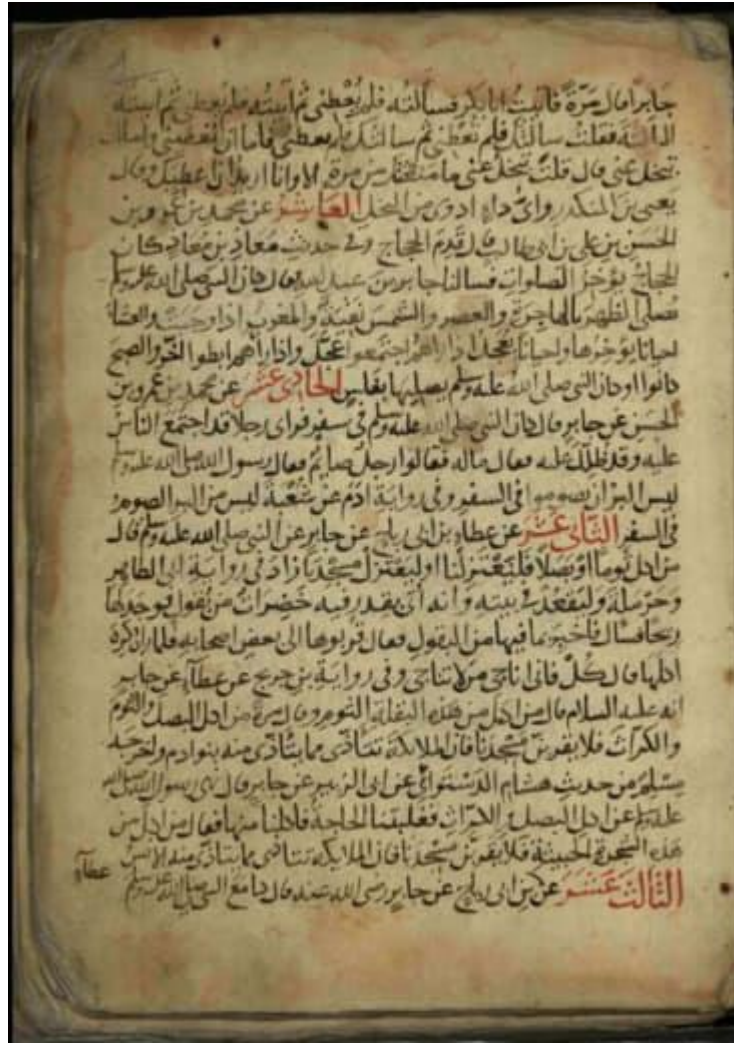 جابرا قال مرة فاتيت ابا بكر فسالته فلم يعطنى ثم اتيته فلم يعطنى ثم اتيته
الثالثة فقلت سالتك فلم تعطنى ثم سالتك فلم تعطنى فاما ان تعطينى واما ان
تبخل عنى قال قلت تبخل عنى ما منعتك من مرة الا وانا اريد ان اعطيك وقال
يعنى بن المنكدر واى داء ادوى من البخل العاشر عن محمد بن عمرو بن
الحسن بن على بن ابى طالب قال قدم الحجاج وفى حديث معاذ بن معاذ كان
الحجاج يؤخر الصلوات فسالنا جابر بن عبد الله فقال كان النبى صلى الله عليه وسلم
يصلى الظهر بالهاجرة والعصر والشمس نقية والمغرب اذا وجبت والعشا
احيانا يؤخرها واحيانا يعجل اذا راهم اجتمعوا عجل واذا راهم ابطوا اخر والصبح
كانوا او كان النبى صلى الله عليه وسلم يصليها بغلس الحادى عشر عن محمد بن عمرو بن
الحسن عن جابر قال كان النبى صلى الله عليه وسلم فى سفر فراى رجلا قد اجتمع الناس
عليه وقد ظلل عليه فقال ماله فقالوا رجل صائم فقال رسول الله صلى الله عليه وسلم
ليس البر ان يصوموا فى السفر وفى رواية ادم عن شعبة ليس من البر الصوم
فى السفر الثانى عشر عن عطاء بن ابى رباح عن جابر عن النبى صلى الله عليه وسلم قال
من اكل ثوما او بصلا فليعتزلنا او ليعتزل مسجدنا زاد فى رواية ابى الطاهر
وحرملة وليقعد فى بيته وانه اتى بقدر فيه خضرات من بقول فوجد لها
ريحا فسال فاخبر بما فيها من البقول فقال قربوها الى بعض اصحابه فلما راه كره
اكلها قال كل فانى اناجى من لا تناجى وفى رواية بن جريج عن عطاء عن جابر
انه عليه السلام قال من اكل من هذه البقلة الثوم وقال مرة من اكل البصل والثوم
والكراث فلا يقربن مسجدنا فان الملايكة تتاذى مما يتاذى منه بنو ادم ولخرجه
مسلم من حديث هشام الدستوائى عن ابى الزبير عن جابر قال نهى رسول الله صلى الله
عليه وسلم عن اكل البصل و الكراث فغلبتنا الحاجة فاكلنا منها فقال من اكل من
هذه الشجرة الخبيثة فلا يقربن مسجدنا فان الملايكة تتاذى مما يتاذى منه الانس
الثالث عشر عن بن ابى رباح عن جابر رضى الله عنه قال كنا مع النبى صلى الله عليه وسلم
عطاء